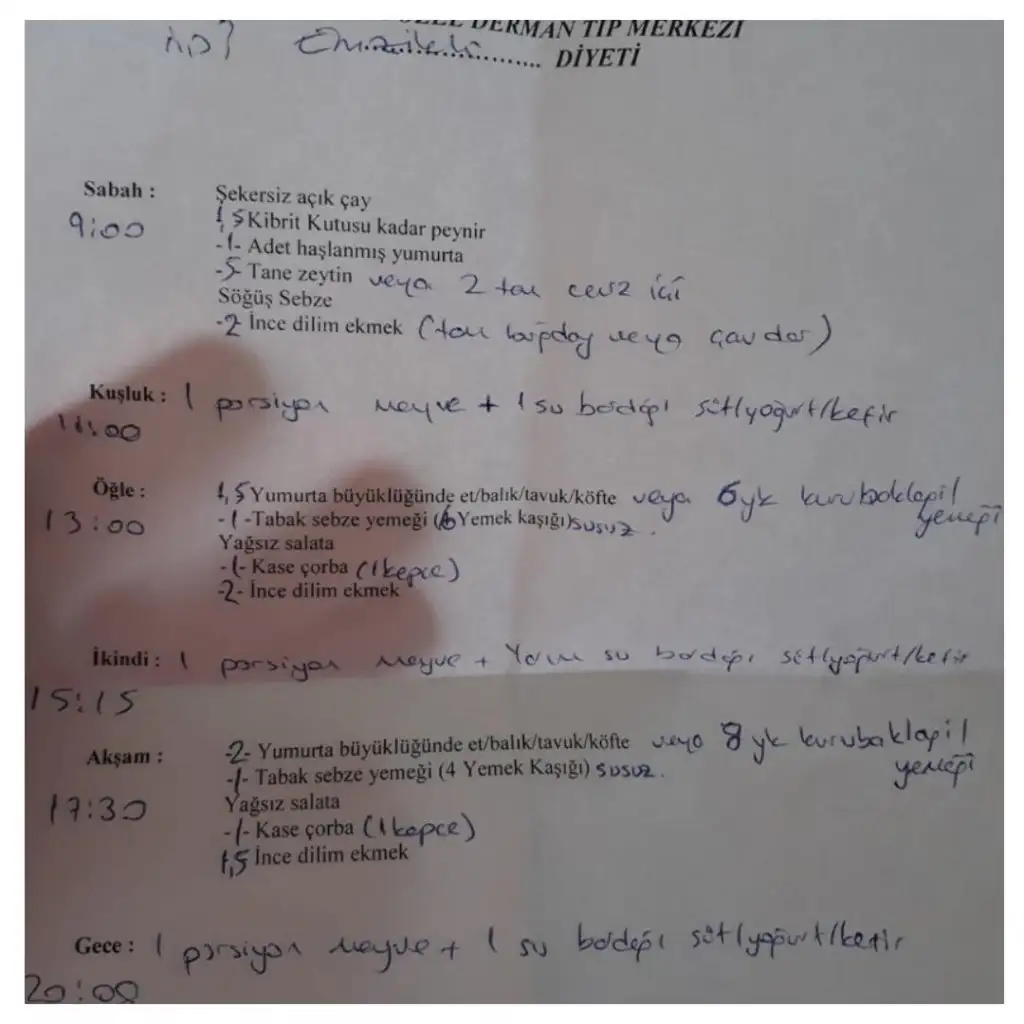 DERMAN TIP MERKEZİ
Emzikli............ DİYETİ
Sabah : Şekersiz açık çay
9:00 1,5 Kibrit Kutusu kadar peynir
-1- Adet haşlanmış yumurta
-5- Tane zeytin veya 2 tam ceviz içi
Söğüş Sebze
-2 İnce dilim ekmek (tam buğday veya çavdar)
Kuşluk : 1 porsiyon meyve + 1 su bardağı süt/yoğurt/kefir
11:00
Öğle : 1,5 Yumurta büyüklüğünde et/balık/tavuk/köfte veya 6 yk kurubaklagil yemeği
13:00 -1-Tabak sebze yemeği (6 Yemek kaşığı) susuz.
Yağsız salata
-1- Kase çorba (1 kepçe)
-2- İnce dilim ekmek
İkindi : 1 porsiyon meyve + Yarım su bardağı süt/yoğurt/kefir
15:15
Akşam : -2- Yumurta büyüklüğünde et/balık/tavuk/köfte veya 8 yk kurubaklagil yemeği
-1- Tabak sebze yemeği (4 Yemek Kaşığı) susuz.
17:30 Yağsız salata
-1- Kase çorba (1 kepçe)
1,5 İnce dilim ekmek
Gece : 1 porsiyon meyve + 1 su bardağı süt/yoğurt/kefir
20:00